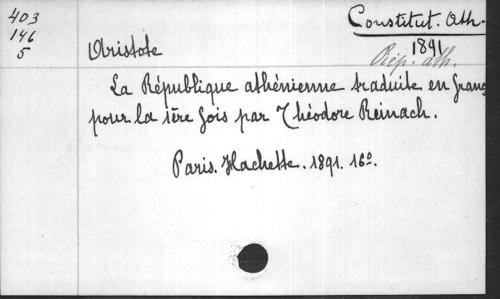 403
146
5
Constitut. Ath.
1891
Rép. ath.
Aristote
La République athénienne traduite en franç
pour la 1ère fois par Théodore Reinach.
Paris. Hachette. 1891. 16º.